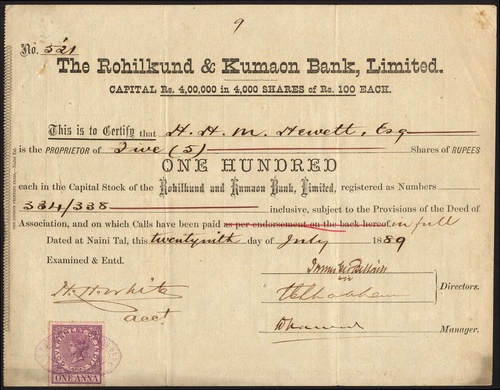 9
No. 521
The Rohilkund & Kumaon Bank, Limited.
CAPITAL Rs. 4,00,000 in 4,000 SHARES of Rs. 100 EACH.
This is to Certify that H. H. M. Hewett, Esq
is the PROPRIETOR of Five (5) Shares of RUPEES
ONE HUNDRED
each in the Capital Stock of the Rohilkund and Kumaon Bank, Limited, registered as Numbers
334/338 inclusive, subject to the Provisions of the Deed of
Association, and on which Calls have been paid as per endorsement on the back hereof in full
Dated at Naini Tal, this twentyninth day of July 1889
Examined & Entd.
H. H. White
Acct.
Directors.
Manager.
GOVERNMENT OF INDIA
ONE ANNA